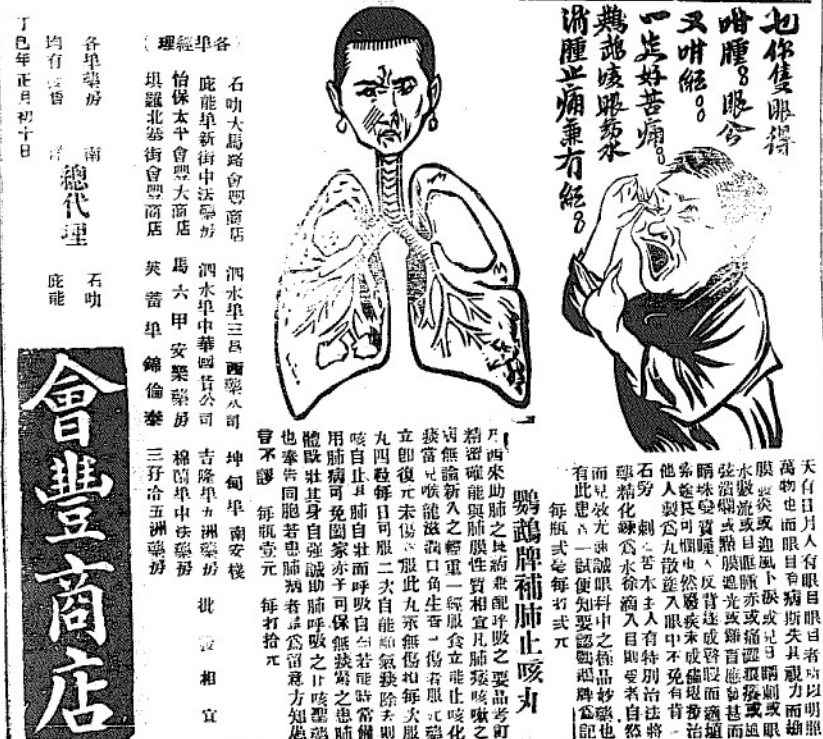 乜你隻眼得
咁腫眼合
又咁紅
一定好苦痛
鸚鵡 眼葯水
消腫止痛兼冇紅
天有日月人有眼目眼目者所以明照
萬物也而眼目有病斯失其視力而
膜 炎或迎風下淚或見日睛刺或眼
水數流或目眶腫赤或痛 痕癢或
弦潰爛或點膜遮光或雞盲
睛珠變質
他人製為丸散塗入眼中不免有
石勞 刺之苦本主人有特別治法將
藥精化鍊為水徐滴入目則受者自然
而見效尤速誠眼科中之極品妙藥也
有此患者一試便知要認鸚鵡牌為記
每瓶弍毫每打弍元
鸚鵡牌補肺止咳丸
用西來助肺之良葯兼配呼吸之要品考訂
精密確能與肺膜性質相宜凡肺痰咳嗽之
病無論新久之輕重一經服食立能止咳化
痰當見喉龍滋潤口角生香已傷者服元藥
立即復元未傷者服此丸亦無傷初每次服
丸四粒每日可服二次自能順氣痰除夫則
咳自止其肺自壯而呼吸自
用肺病可免闔家亦于可保無痰 之患肺
體既壯其身自强誠助肺呼吸之止咳聖藥
也奉告同胞若患肺病者 為留意方知
言不謬 每瓶壹元 每打拾元
各埠經理
石叻大馬路會豐商店 泗水埠三昌西藥公司 坤甸埠南安棧
庇能埠新街中法藥房 泗水埠中華國貨公司 吉隆埠五洲藥房 批發相宜
怡保太平會豐大商店 馬六甲安樂藥房 棉蘭埠中法藥房
垻羅北基街會豐商店 芙蓉埠錦倫泰 三孖冶五洲藥房
各埠藥房
均有
南洋總代理
石叻
庇能
會豐商店
丁巳年正月初十日